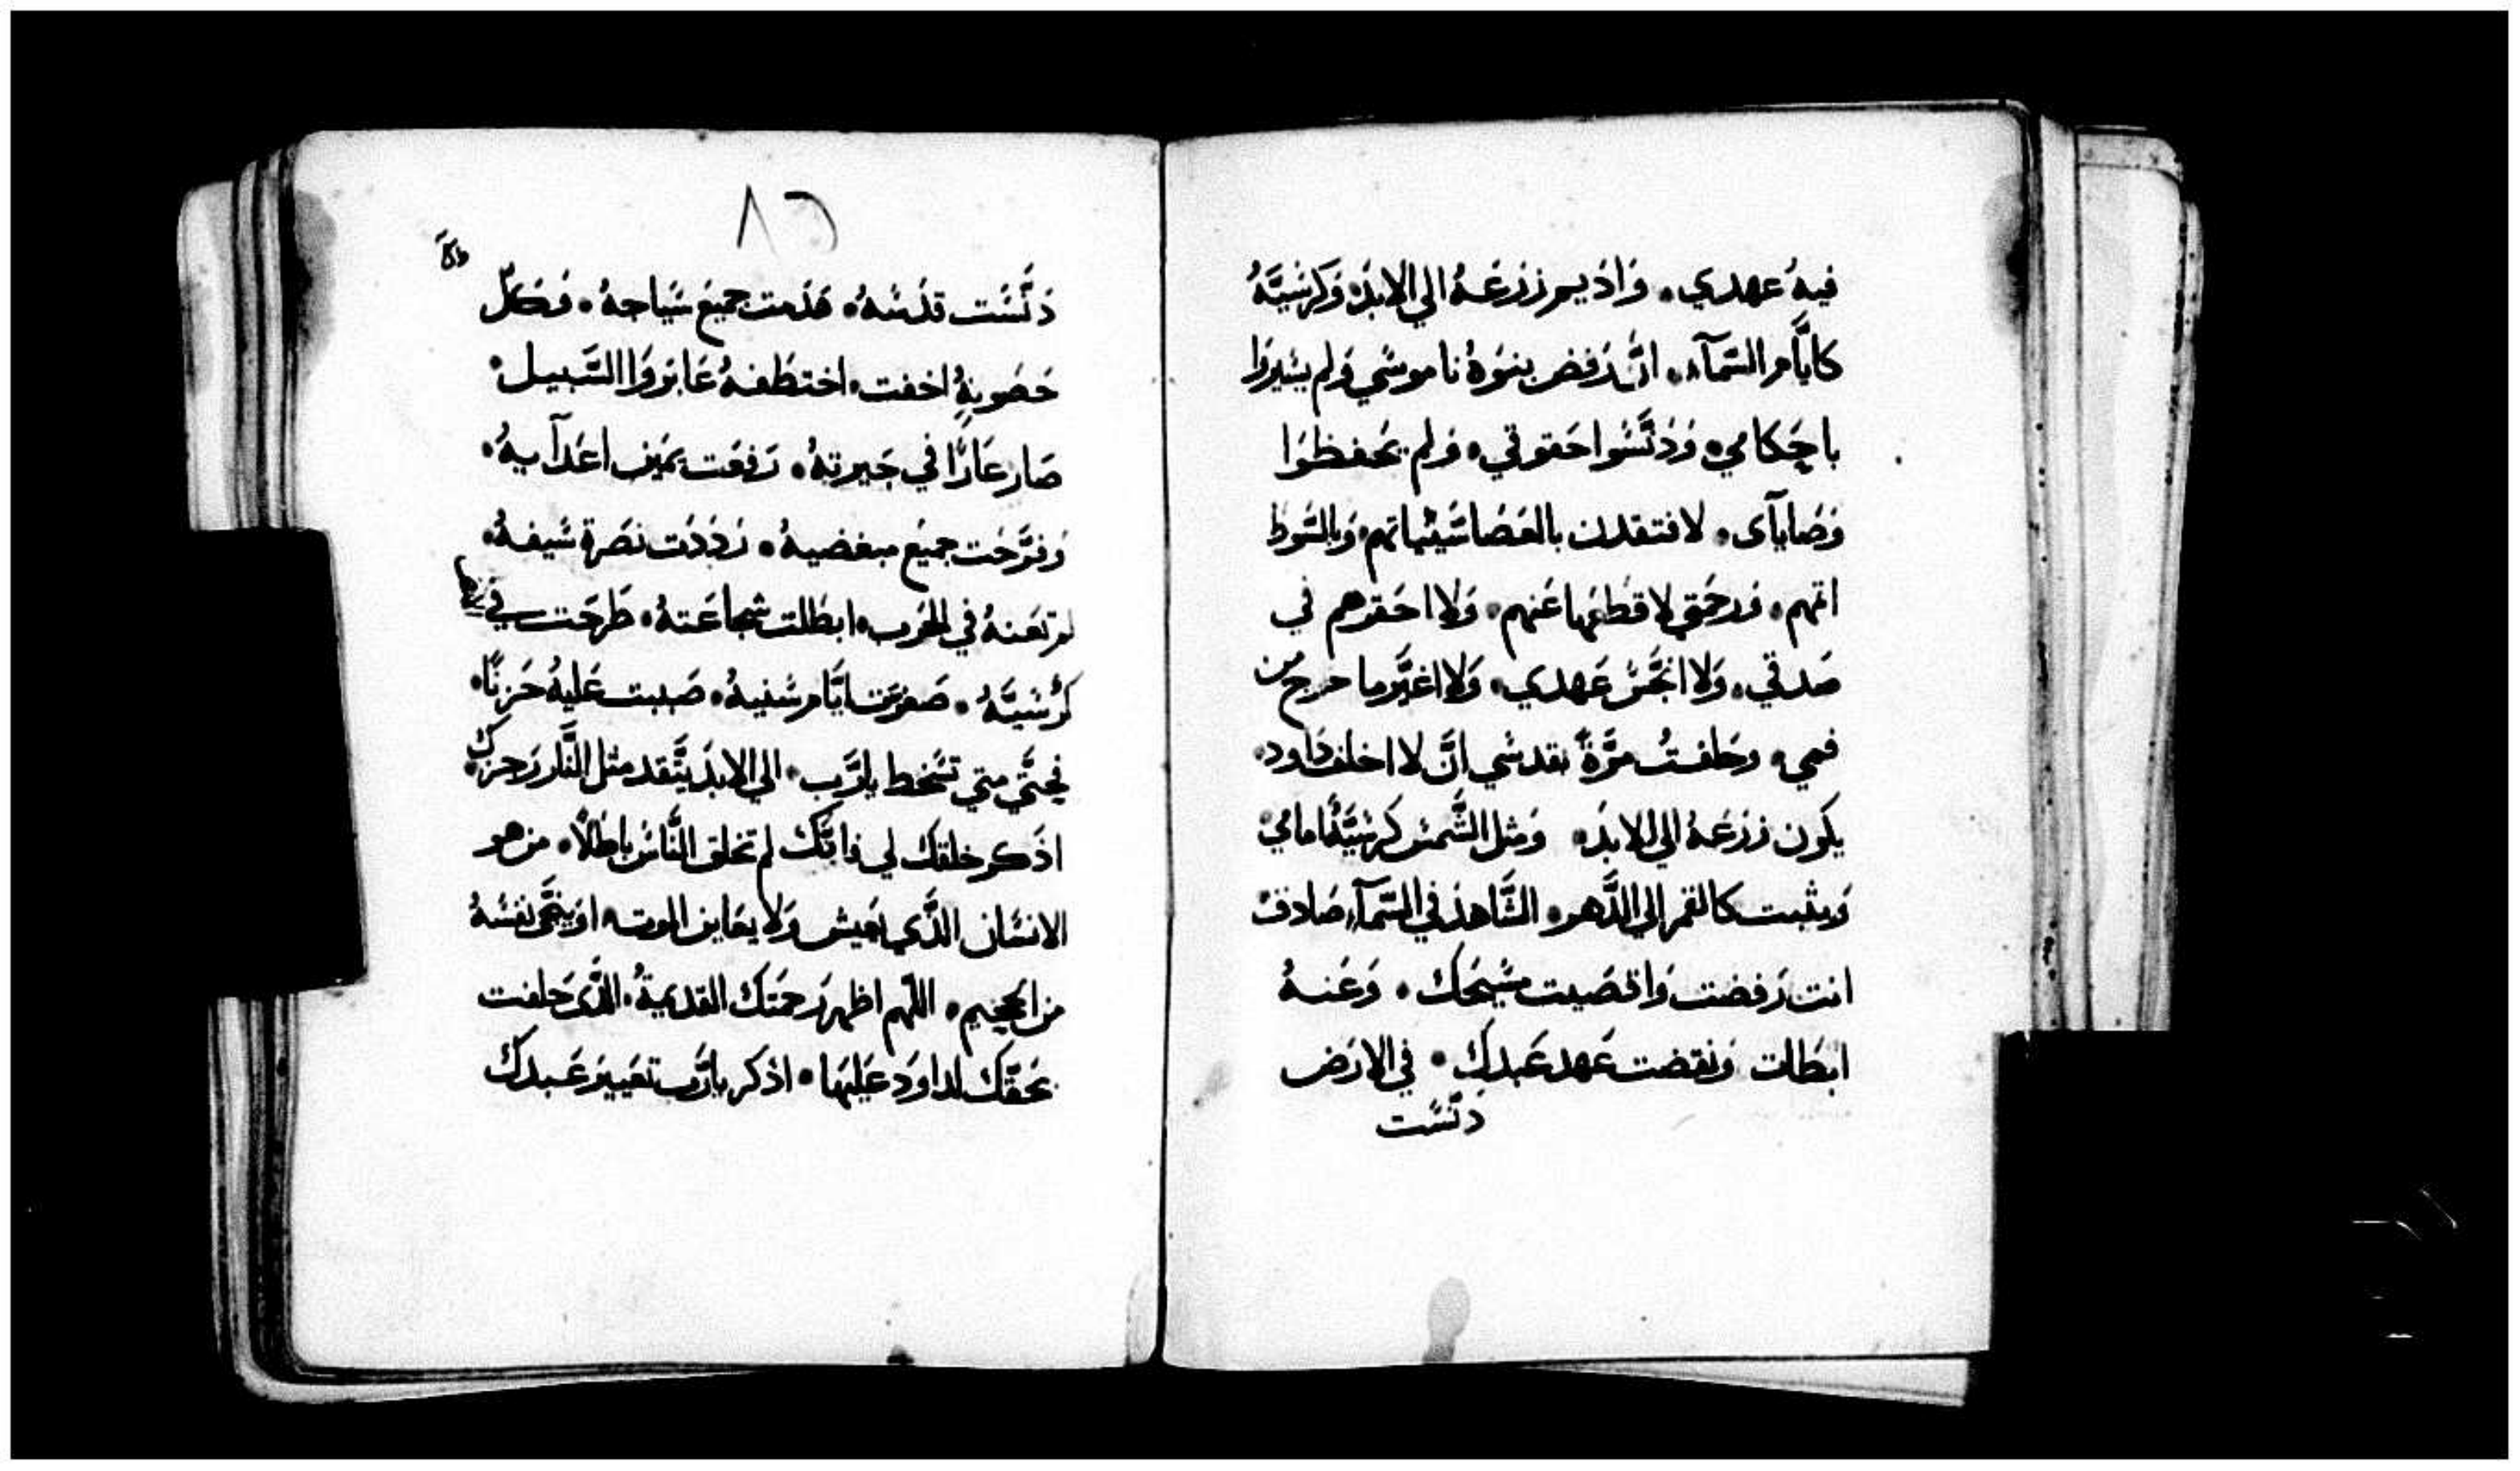 فيهُ عهدي. وَاديم زرعَهُ الي الابد وَكرسيَّهُ
كايَّام السَّمآء. انْ رَفض بنوهُ ناموسي وَلم يسيروا
باحكامي. وَدَنَّسوا حقوقي. وَلم يحفظوا
وَصَايآى. لافتقدن بالعَصَا سَيئياتهم وَبالسَّوط
اتمهم. وَرحمتي لا اقطعها عَنهم. وَلا احقرهم في
صدقي. وَلا انجَّسْ عَهدي. وَلا اغيَّر ما خرج من
فمي. وحَلفتُ مرَّةً بقدسي انَّ لا اخلف داود.
يكون زرعَهُ الي الابد. وَمثل الشَّمس كرسيَّهُ امامي.
وَيثبت كالقمر الي الدَّهر. الشَّاهد في السَّمآء صَادق
انت رَفضت وَاقصيت مَسيحَك. وَعَنهُ
ابطَالت وَنقضت عَهد عَبدك. في الارَض
دَنَّسَت
٨٢
دَنَّسَت قدسَهُ. هَدمت جميعَ سَياجهُ. وَكلّ
حَصُونهُ اخفت. اختطَفهُ عَابروَا السَّبيل.
صَار عَارًا في جَيرتهُ. رَفعَت يمَين اعَدآيهُ.
وَفرَّحَت جميعَ مبغضيهُ. رَدَدَت نصَرة سَيفهُ.
لم تعَنهُ في الحَرب. ابطَلت شجاعَتهُ. طرحَت في
كرُسَيَّهُ. صَغرَت ايَّام سَنيهُ. صَببت عَليهُ حَزنًا.
فحتَّي متي تسَخط يارَّب. الي الابد يتَّقد مثل النَّار رَجزك.
اذَكر خلقك لي فانَّك لم تخلق النَّاسْ باطلاً. من هو
الانسَان الذَّي يَعيش وَلا يعَاين الموت. اوَ ينجَّي نفسَهُ
من الجحيم. اللّهم اظهر رَحمَتك القديمةُ. الذَّى حَلفت
بحَقَّك لداوَد عَليهَا. اذكر يارَّب تعَيير عَبدك